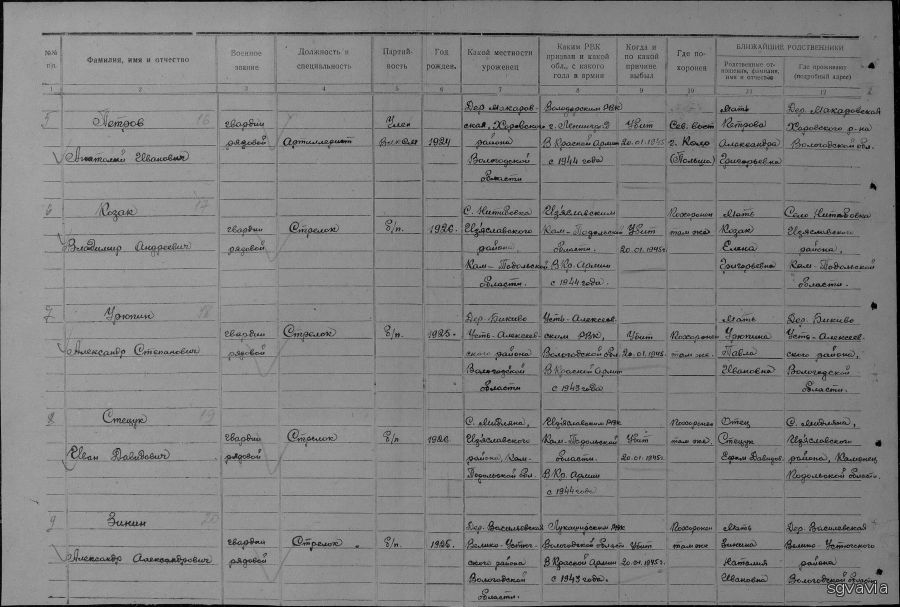 №№ п/п.
Фамилия, имя и отчество
Военное звание
Должность и специальность
Партийность
Год рожден.
Какой местности уроженец
Каким РВК призван и какой обл., с какого года в армии
Когда и по какой причине выбыл
Где похоронен
БЛИЖАЙШИЕ РОДСТВЕННИКИ
Родственные отношения, фамилия, имя и отчество
Где проживают (подробный адрес)
1 2 3 4 5 6 7 8 9 10 11 12
5 Петров 16
Анатолий Иванович
гвардии
рядовой
Артиллерист
Член
ВЛКСМ
1924
Дер. Макаров-
ская, Харовского
района
Вологодской
области
Володарским РВК
г. Ленинград
В Красной Армии
с 1944 года
Убит
20.01.1945г.
Сев. вост
(Польша)
Мать
Петрова
Александра
Григорьевна
Дер. Макаровская
Харовского р-на
Вологодской обл.
6 Козак 17
Владимир Андреевич
гвардии
рядовой
Стрелок
Б/п.
1926.
С. Митовка
Изяславского
района
Кам-Подольской
области.
Изяславским
Кам-Подольской
области.
В Кр. Армии
с 1944 года.
Убит
20.01.1945г.
Похоронен
там же
Мать
Козак
Елена
Григорьевна
Село
Изяславского
района,
Кам-Подольской
области.
7 Удюгин 18
Александр Степанович
гвардии
рядовой
Стрелок
Б/п.
1925.
Дер. Викиво
Усть-Алексеев
ского района
Вологодской
области
Усть-Алексеев.
ским РВК,
Вологодской обл.
В Красной Армии
с 1943 года
Убит
20.01.1945г.
Похоронен
там же.
Мать
Удюгина
Павла
Ивановна
Дер. Викиво
Усть-Алексеев
ского района,
Вологодской
области.
8 Стецук 19
Иван Давидович
гвардии
рядовой
Стрелок
Б/п
1926
Изяславского
района, Кам-
Подольской обл.
Изяславским РВК
Кам-Подольской
области.
В Кр. Армии
с 1944 года
Убит
20.01.1945г.
Похоронен
там же.
Отец
Стецук
Изяславского
района, Каменец
Подольской области.
9 Зинин 20
Александр Александрович
гвардии
рядовой
Стрелок
Б/п.
1925.
Дер. Васильевская
Велико-Устюг-
ского района
Вологодской
области.
Вологодской области
В Красной Армии
с 1943 г.
Убит
20.01.1945г.
Похоронен
там же
Мать
Зинина
Наталия
Ивановна
Дер. Василевская
Велико-Устюгского
района
Вологодской области
sgvavia